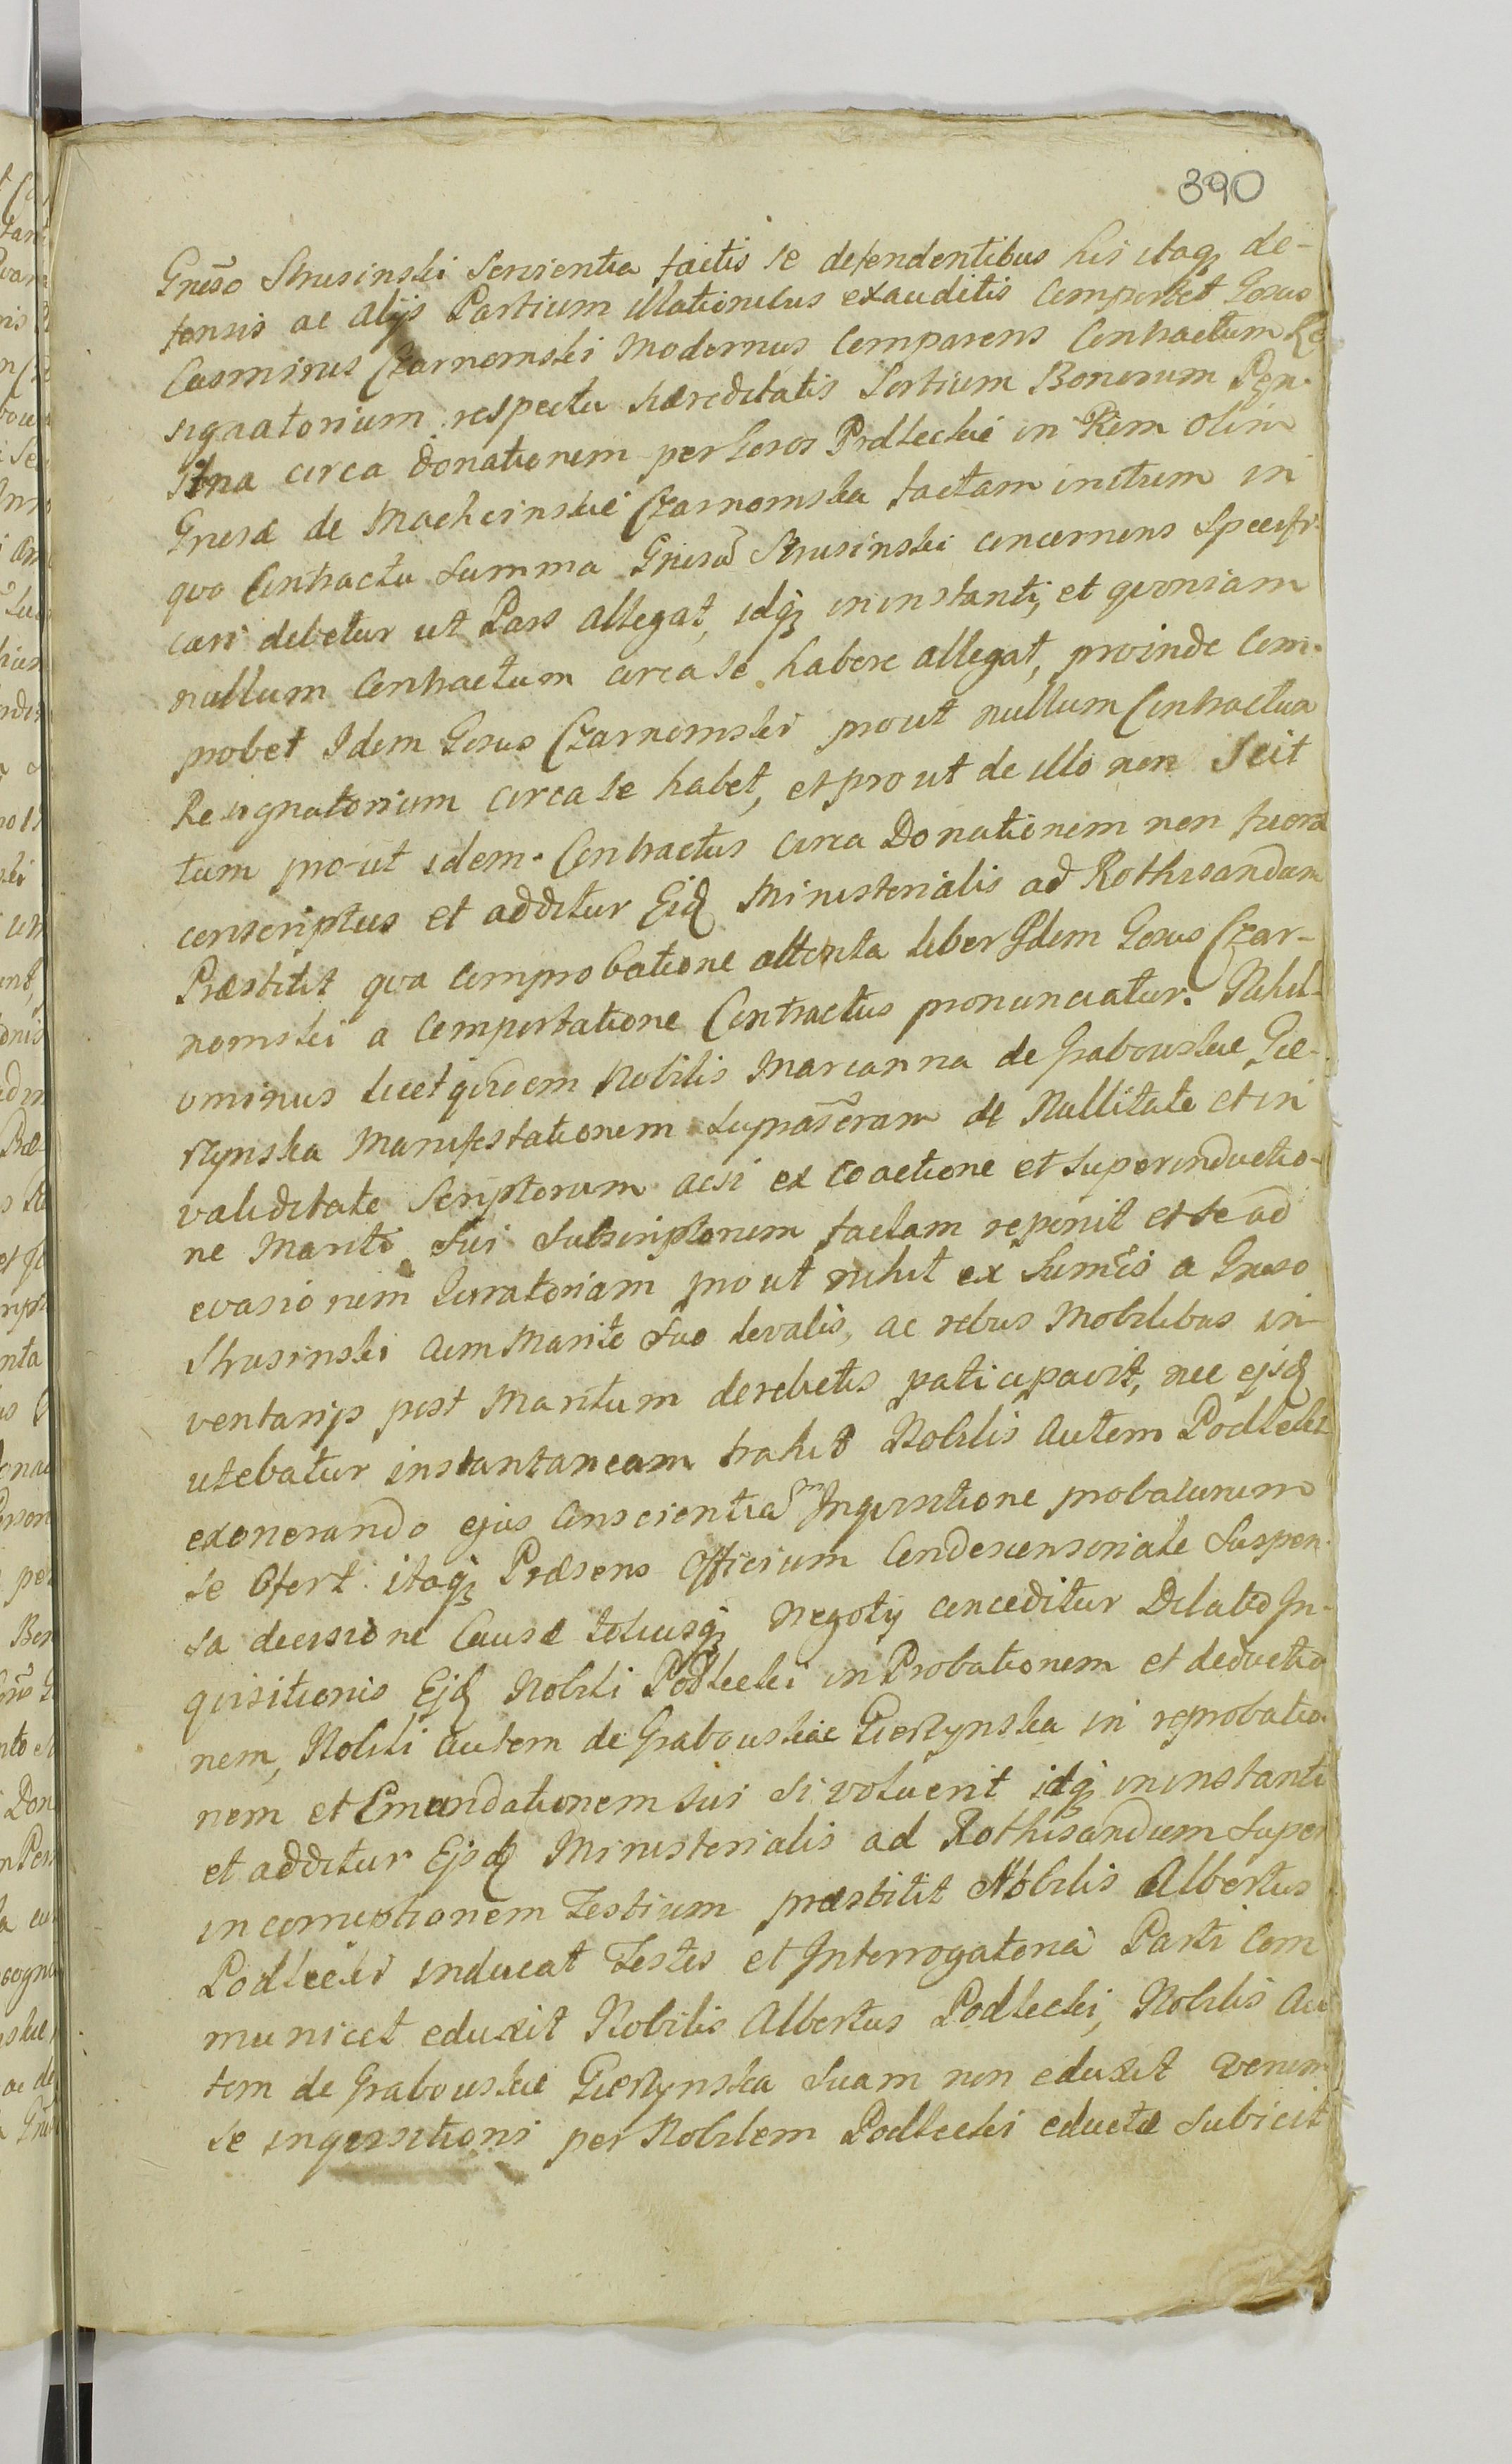 390
Gneso Strusinski Servientia factis se defendentibus his itaq de-
fensis ac alijs Partium illationibus exauditis Comportet Gosus
Casmirus Czarnomski Modernus Comparens Contractum Re
signatorium respectu hæreditatis Sortium Bonorum
circa Donationem per Gosos Podleckie in Rem olim
Gnesæ de Machcinskie Czarnomska factam initum in
quo Contractu Summa Gnesū Strusinski concernens Specifi-
cari debetur ut Pars allegat, idq in instanti, et quoniam
nullum Contractum circa se habere allegat, proinde Com-
probet Idem Gosus Czarnomski prout nullum Contractum
Resignatorium circa se habet, et prout de illo non Scit
tum pro-ut idem Contractus circa Donationem non fuera
conscriptus et additur Eid Ministerialis ad Rothisandam
Præstitit qva Comprobatione attenta liber Idem Gosus Czar-
nomski a Comportatione Contractus pronunciatur. Nihil-
ominus licet quidem Nobilis Marianna de Grabowskie Gie-
rzynska Manifestationem Supraseram de Nullitate et in
validitate Scriptorum acsi ex coactione et Superinductio-
ne Mariti Sui Subscriptorum factam reponit et se ad
evasionem Iuratoriam prout nihil ex Sumis a Gneso
Strusinski cum Marito Suo levatis, ac rebus Mobilibus in-
ventarijs post Maritum derelictis paticipavit, nec ejsd
utebatur instantaneam trahit Nobilis autem Podlecki
exonerando ejus Conscientiam Inqvisitione probaturum
se Ofert. itaq Præsens Officium Condescensoriale Suspen-
sa decisione Causæ totiusq Negotij conceditur Dilatio In-
quisitionis Ejd Nobili Podlecki in Probationem et deductio
nem, Nobili autem de Grabowskie Gierzynska in reprobatio-
nem et Emundationem sui Si voluerit idq in instanti
et additur Ejsd Ministerialis ad Rothisandum Super
incorruptionem Testium præstitit Nobilis Albertus
Podlecki inducat Testes et Interrogatoria Parti Com
municet eduxit Nobilis Albertus Podlecki, Nobilis Au
tem de Grabowskie Gierzynska Suam non eduxit verum
se inqvisitioni per Nobilem Podlecki eductæ Subicit